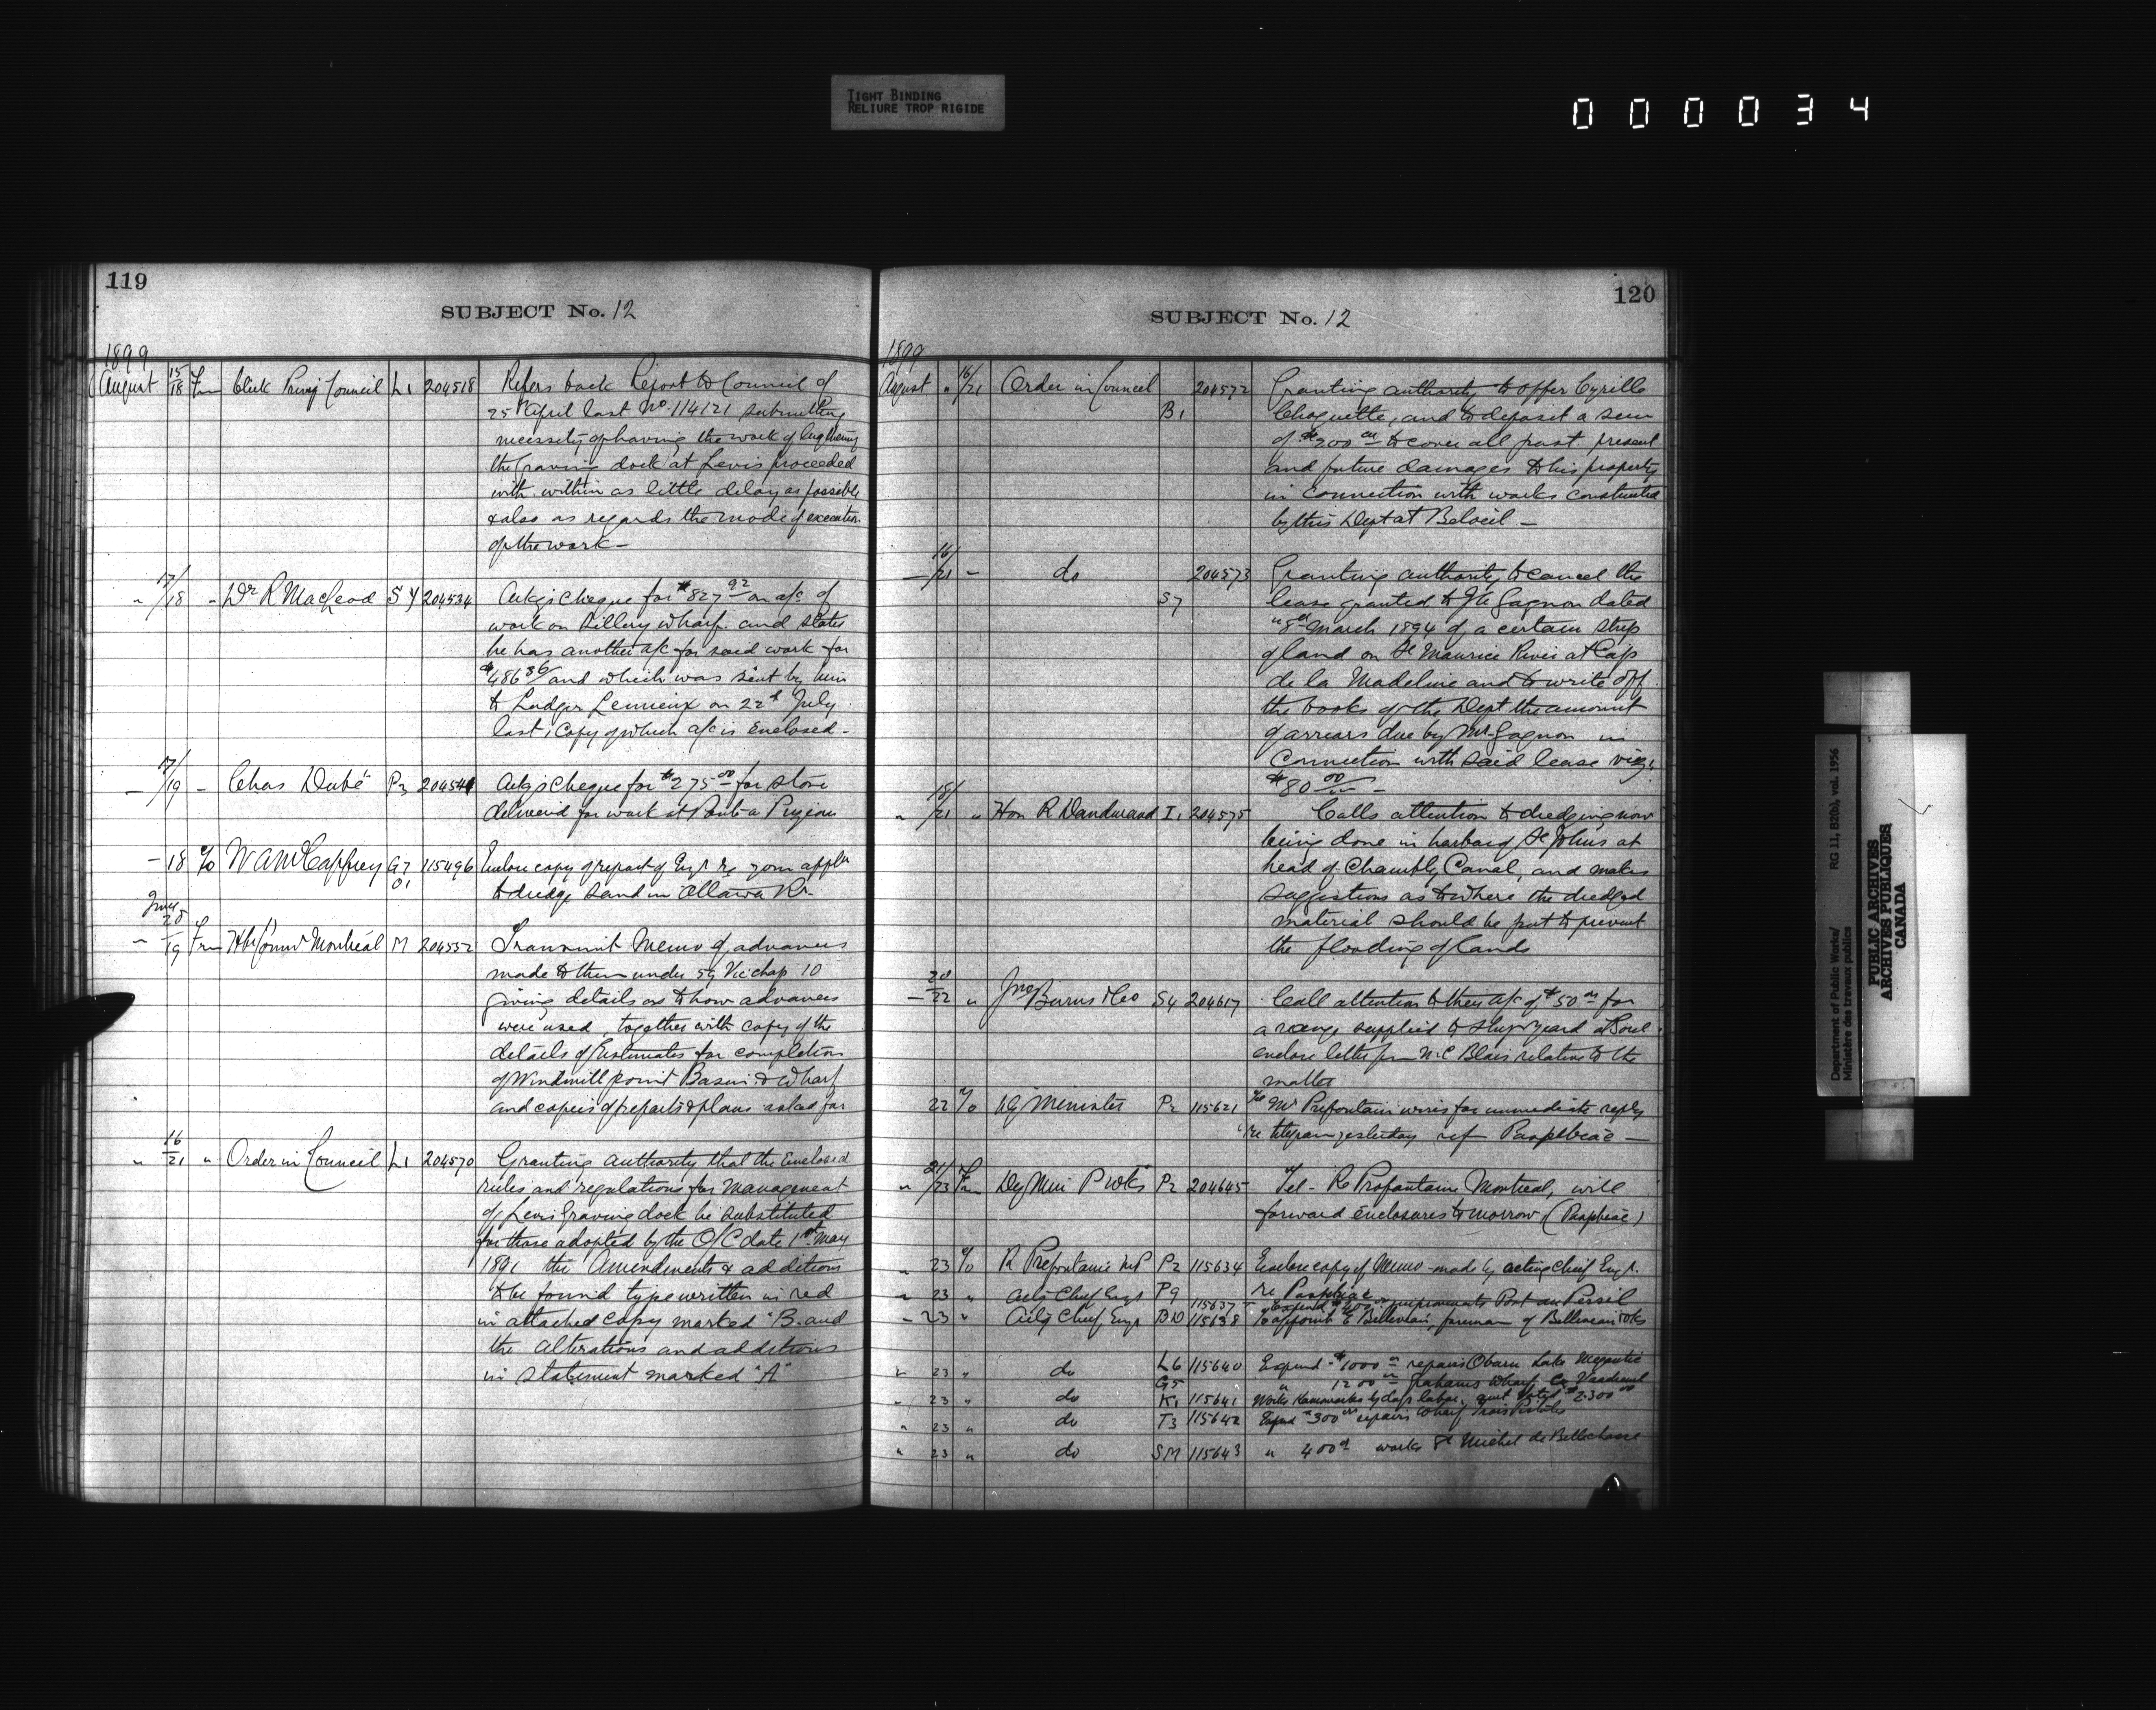 TIGHT BINDING
RELIURE TROP RIGIDE
000034
119
SUBJECT No. 12
1899
August 15/18 Frm Clerk Privy Council L1 204518 Refers back Report to Council of
25th April last No. 114121 submitting
necessity of having the work of lengthening
the Graving dock at Levis proceeded
with within as little delay as possible
& also as regards the mode of execution
of the work —
" 17/18 " Dr R MacLeod S Y 204534 Ackgs cheque for $827 92 on a/c of
work on Sillery Wharf. and states
he has another a/c for said work for
$486 36 and which was sent by him
to Ludger Lemieux on 22d July
last, Copy of which a/c is enclosed -
— 17/19 - Chas Dubé P3 204541 Ackgs cheque for $275 00 for stone
delivered for work at Pointe a Pizeau
- 18 To W A McCaffrey G7 115496 Enclose copy of report of Engr re your appln
O1 to dredge sand in Ottawa Rr
June
— 28/19 Frm Hbr Comrs Montréal M 204552 Transmit Memo of advances
made to them under 59 Vic chap 10
giving details as to how advances
were used, together with copy of the
details of Estimates for completion
of Windmill point Basin & Wharf
and copies of reports & plans asked for
" 16/21 " Order in Council L1 204570 Granting authority that the Enclosed
rules and regulations for Management
of Levis Graving dock be substituted
for those adopted by the O/C date 1st May
1891 the Amendments & additions
to be found type written in red
in attached Copy marked "B. and
the alterations and additions
in Statement marked "A"
120
SUBJECT No. 12
1899
August " 16/21 Order in Council 204572 Granting authority to offer Cyrille
B1 Choquette, and to deposit a sum
of $200 00 to cover all past present
and future damages to his property
in connection with works constructed
by this Dept at Beloeil —
— 16/21 - do 204573 Granting authority to cancel the
S7 lease granted to Gagnon dated
8th March 1894 of a certain strip
of land on St Maurice River at Cap
de la Madeline and to write off
the books of the Dept the amount
of arrears due by Mr Gagnon in
Connection with said lease viz:
$80 00 -
" 18/21 " Hon R Dandurand I1 204575 Calls attention to dredging now
being done in harbor of St Johns at
head of Chambly Canal, and makes
suggestions as to where the dredged
material should be put to prevent
the flooding of lands
— 20/22 " Jno Burns & Co S4 204617 Call attention to their a/c of $50 00 for
a range supplied to Shipyard at Sorel
enclose letter from N. C Blais relative to the
matter
22 To Dy Minister P2 115621 Mr Prefontaine wires for immediate reply
re telegram yesterday ref Paspebiac —
" 21/23 Frm Dy Min P Wks P2 204645 Tel - R Prefontaine Montreal, will
forward enclosures tomorrow (Paspebiac)
" 23 To R Prefontaine MP P2 115634 Enclose copy of Memo made by acting Chief Engr.
re Paspebiac
" 23 " Actg Chief Engr P9 115637 Expend $400 improvements Pot au Persil
" 23 " Actg Chief Engr B10 115638 To appoint E Belliveau, foreman of Belliveau wks
" 23 " do L6 115640 Expend $1000 00 repairs Lake Megantic
G5 " 1200 00 Grahams Wharf Co Vaudreuil
" 23 " do K1 115641 Works Kamouraska by days labor, amt voted $2300 00
" 23 " do T3 115642 Expend $300 00 repairs Wharf Trois Pistoles
" 23 " do SM 115643 " 400 00 works St Michel de Bellechasse
Department of Public Works/ RG 11, B2(b), vol. 1956
Ministère des travaux publics
PUBLIC ARCHIVES
ARCHIVES PUBLIQUES
CANADA